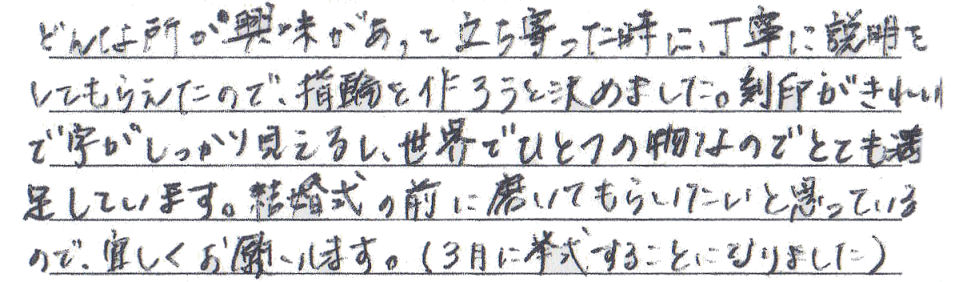 どんな所か興味があって立ち寄った時に、丁寧に説明を
してもらえたので、指輪を作ろうと決めました。刻印がきれい
で字がしっかり見えるし、世界でひとつの物なのでとても満
足しています。結婚式の前に磨いてもらいたいと思っている
ので、宜しくお願いします。(3月に挙式することになりました)